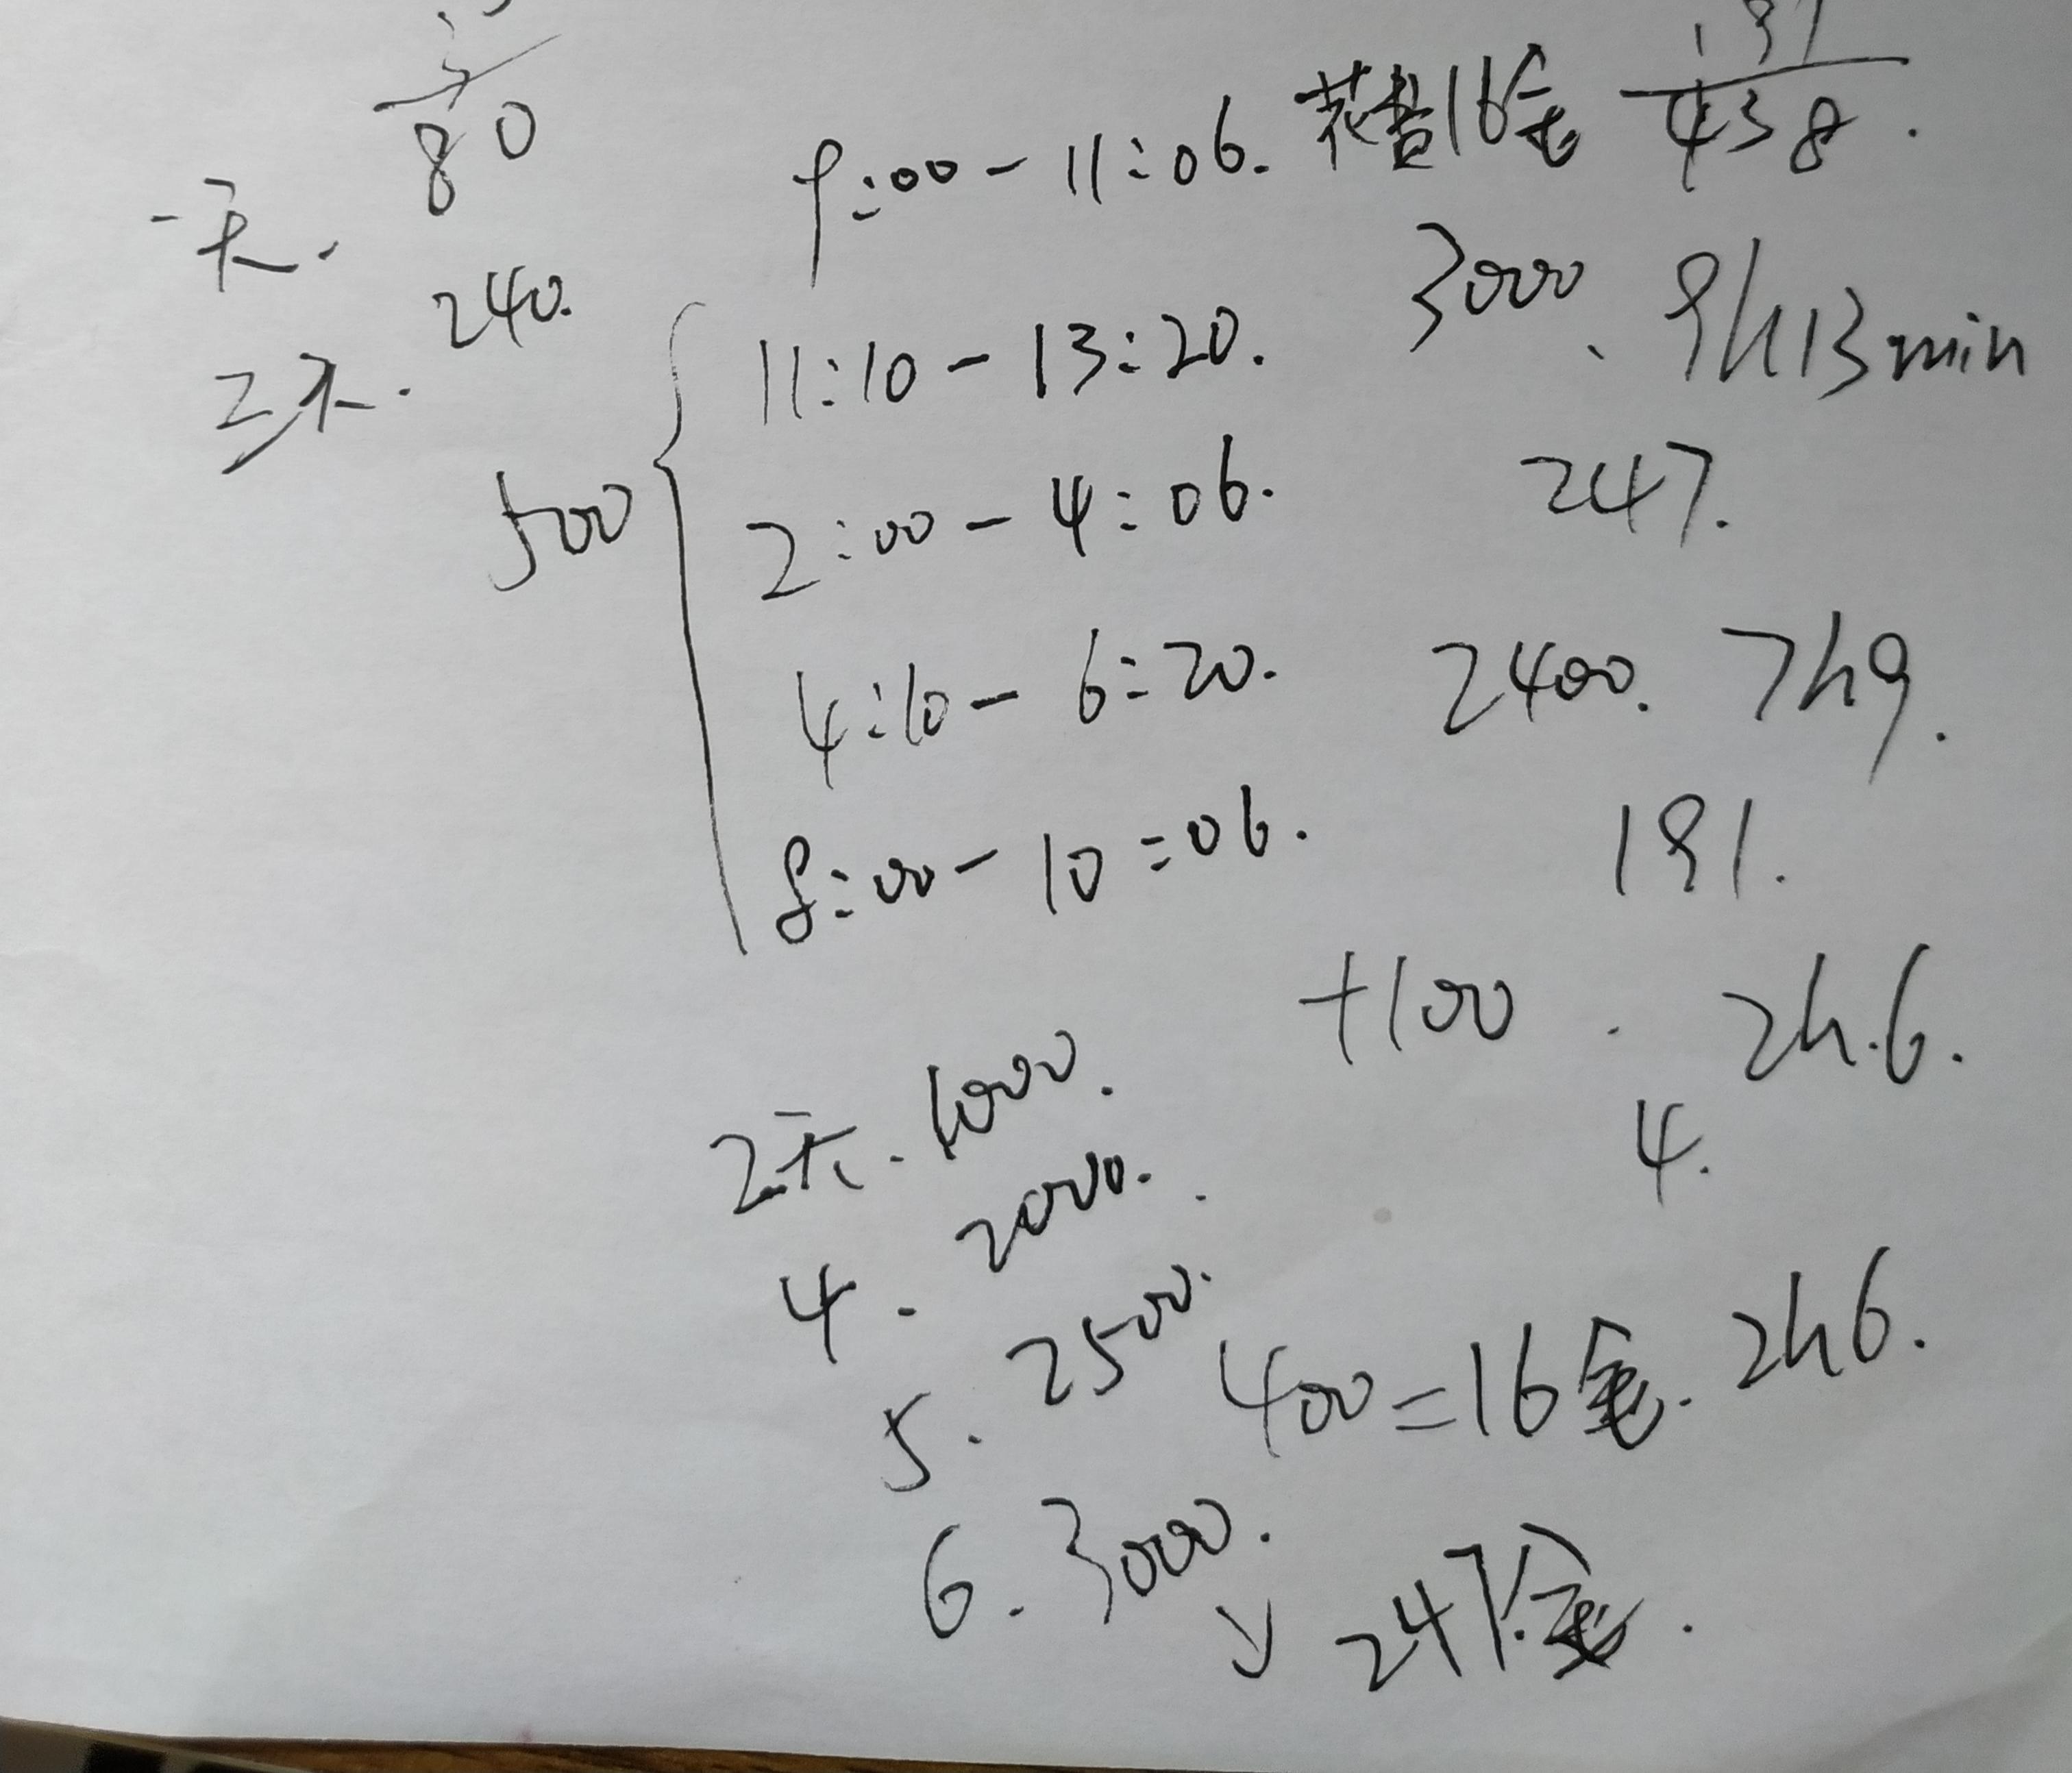 80
一天.
240.
三天.
9:00-11:06. 花费16金
438.
500
11:10-13:20.
2:00-4:06.
4:10-6:20.
8:00-10:06.
3000. 9h13min
247.
2400. 7h9.
191.
+100 . 2h.6.
4.
2天. 1000.
4. 2000.
5. 2500.
6. 3000.
400=16金. 2h6.
247金.